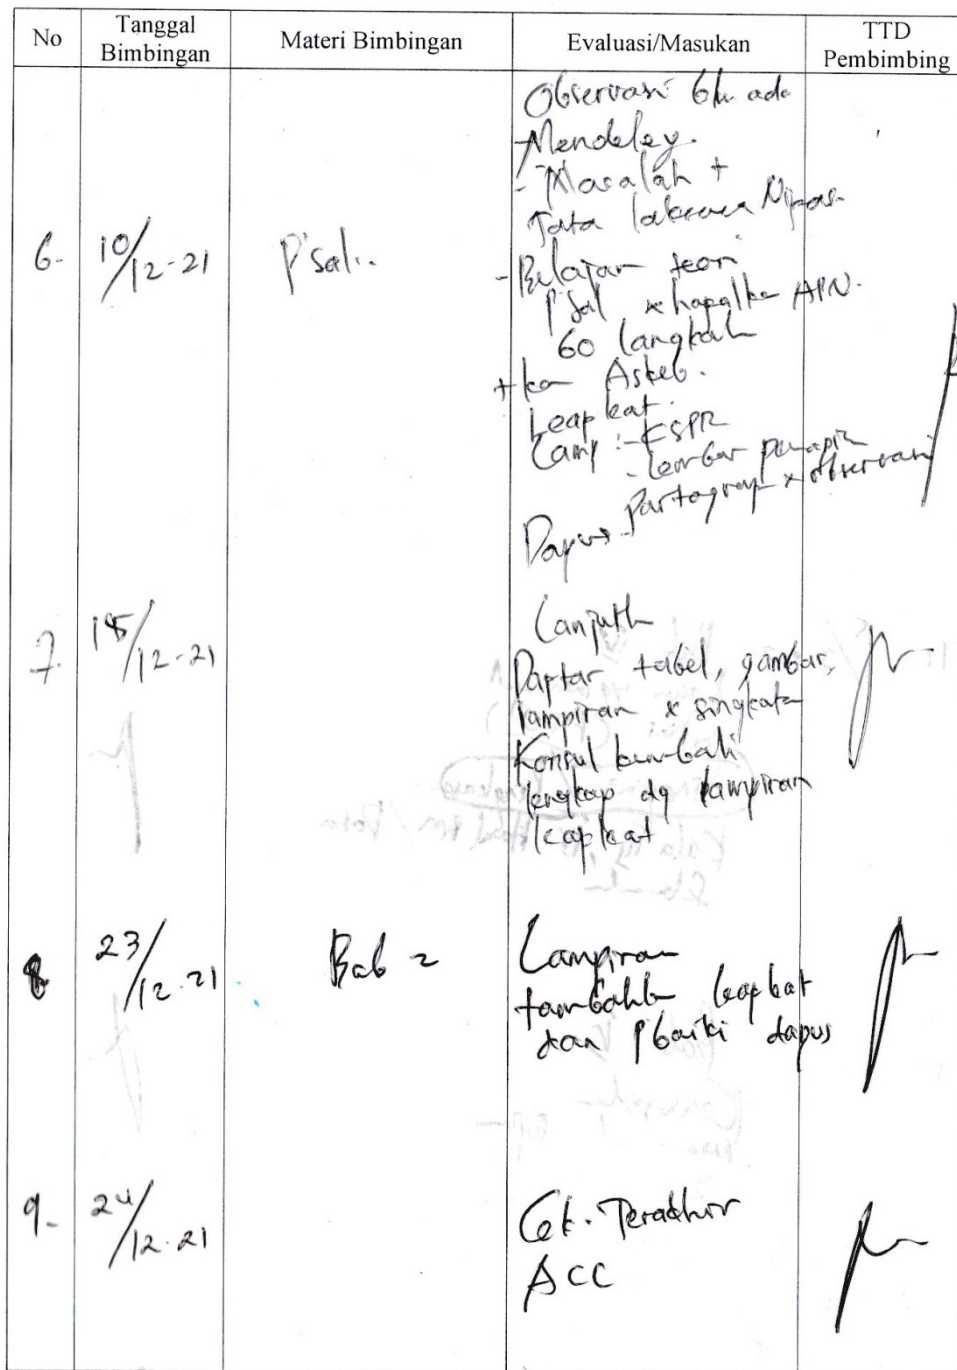 No
Tanggal Bimbingan
Materi Bimbingan
Evaluasi/Masukan
TTD Pembimbing
6.
10/12-21
P'sal..
Observasi blm ada
Mendeley.
- Masalah +
Tata
- Belajar teori
P'sal × hapalkn APN.
60 langkah
+ kan Askeb.
Leapleat.
Lamp :- KSPR
- Lembar penapis
- Partograp × observasi
Dapus
7.
15/12-21
Lanjutk
Daptar tabel, gambar,
lampiran × singkatan
Konsul kembali
lengkap dg lampiran
leapleat
8
23/12-21
Bab 2
Lampiran
tambahk leapleat
dan Pbaiki dapus
9-
24/12-21
Cek. Terakhir
ACC